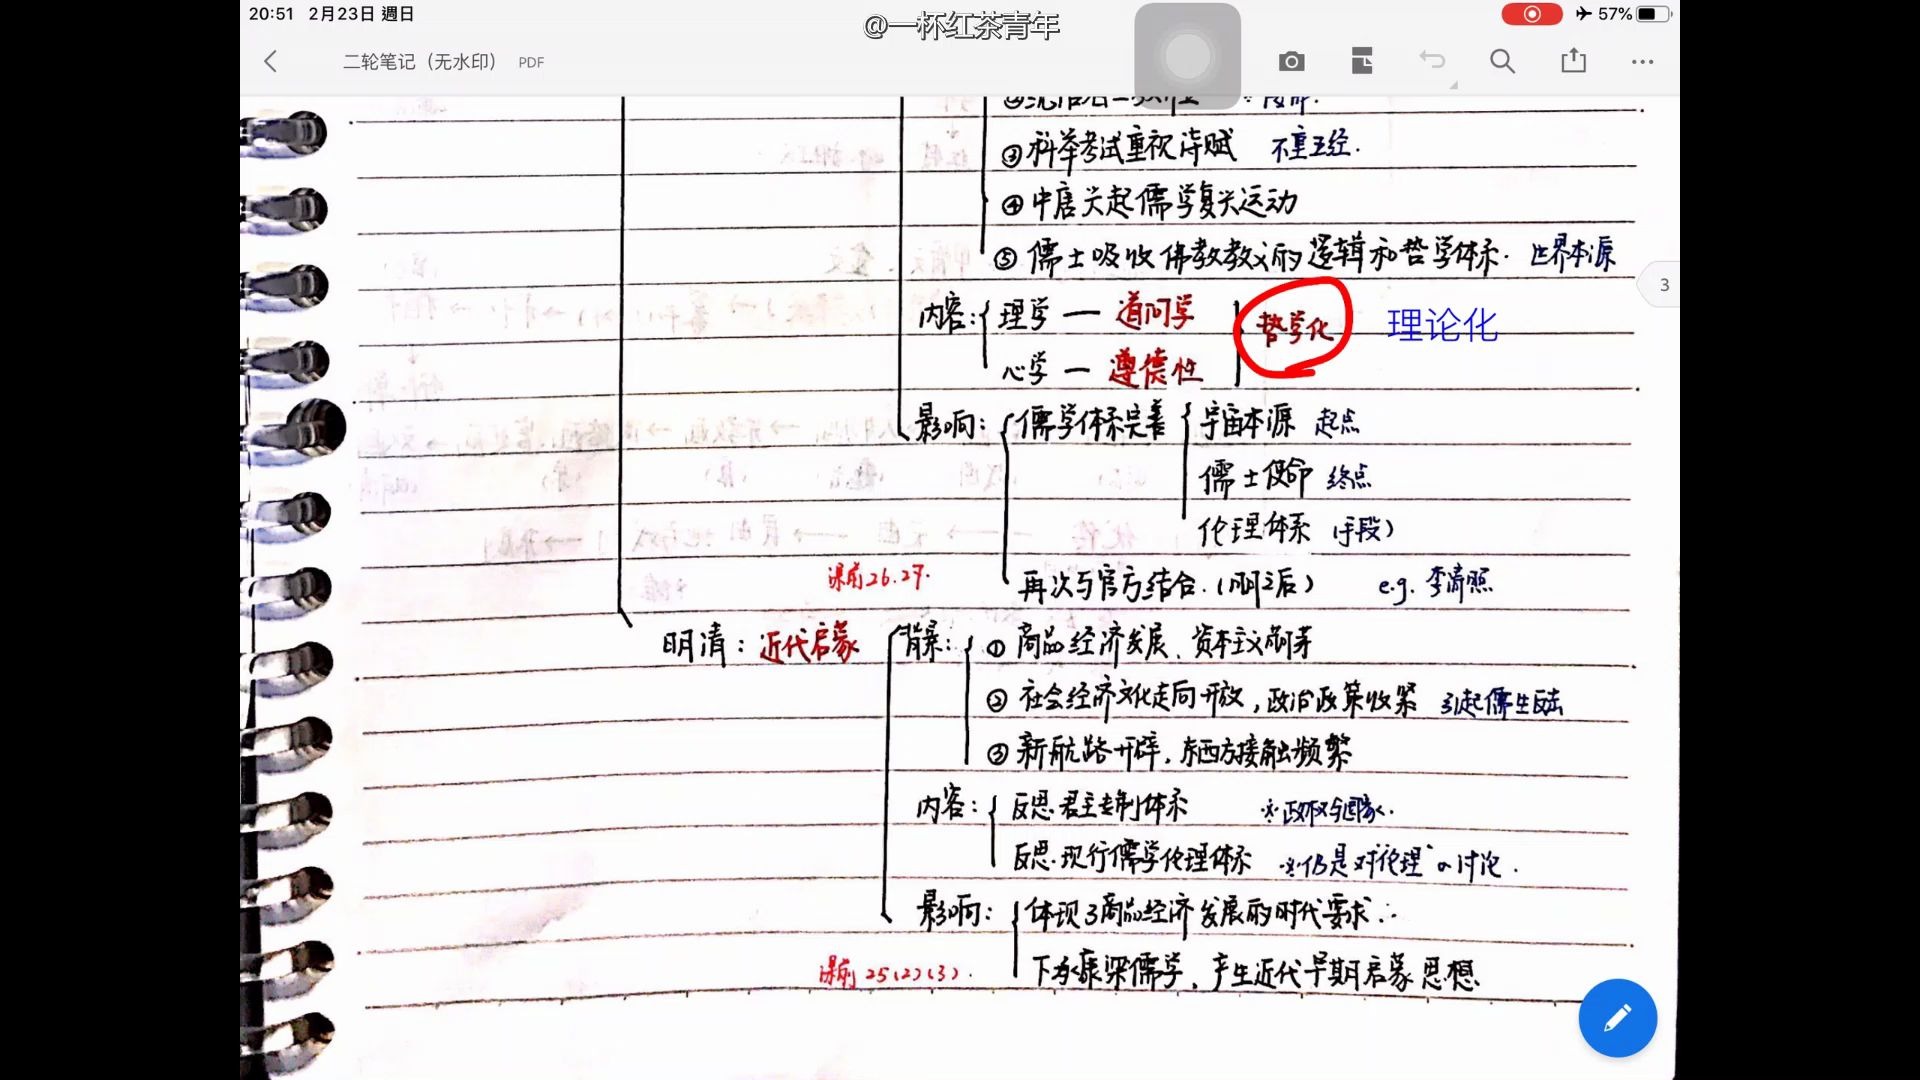 20:51 2月23日 週日
57%
@一杯红茶青年
二轮笔记（无水印） PDF
③科举考试重视诗赋 不重五经.
④中唐兴起儒学复兴运动
⑤儒士吸收佛教教义的逻辑和哲学体系. 世界本源
3
内容: 理学 — 道问学
哲学化 理论化
心学 — 遵德性
影响: 儒学体系完善 宇宙本源 起点
儒士使命 终点
伦理体系 (手段)
课前26.27.
再次与官方结合.(明之后) e.g. 李清照
明清: 近代启蒙 背景: ① 商品经济发展、资本主义萌芽
② 社会经济文化走向开放, 政治政策收紧 引起儒生反击
③ 新航路开辟, 东西方接触频繁
内容: 反思君主专制体系 ※政权与国家.
反思现行儒学伦理体系 ※仍是对"伦理"の讨论.
影响: 体现了商品经济发展的时代要求.
课前 25(2)(3).
下承康梁儒学, 产生近代早期启蒙思想.